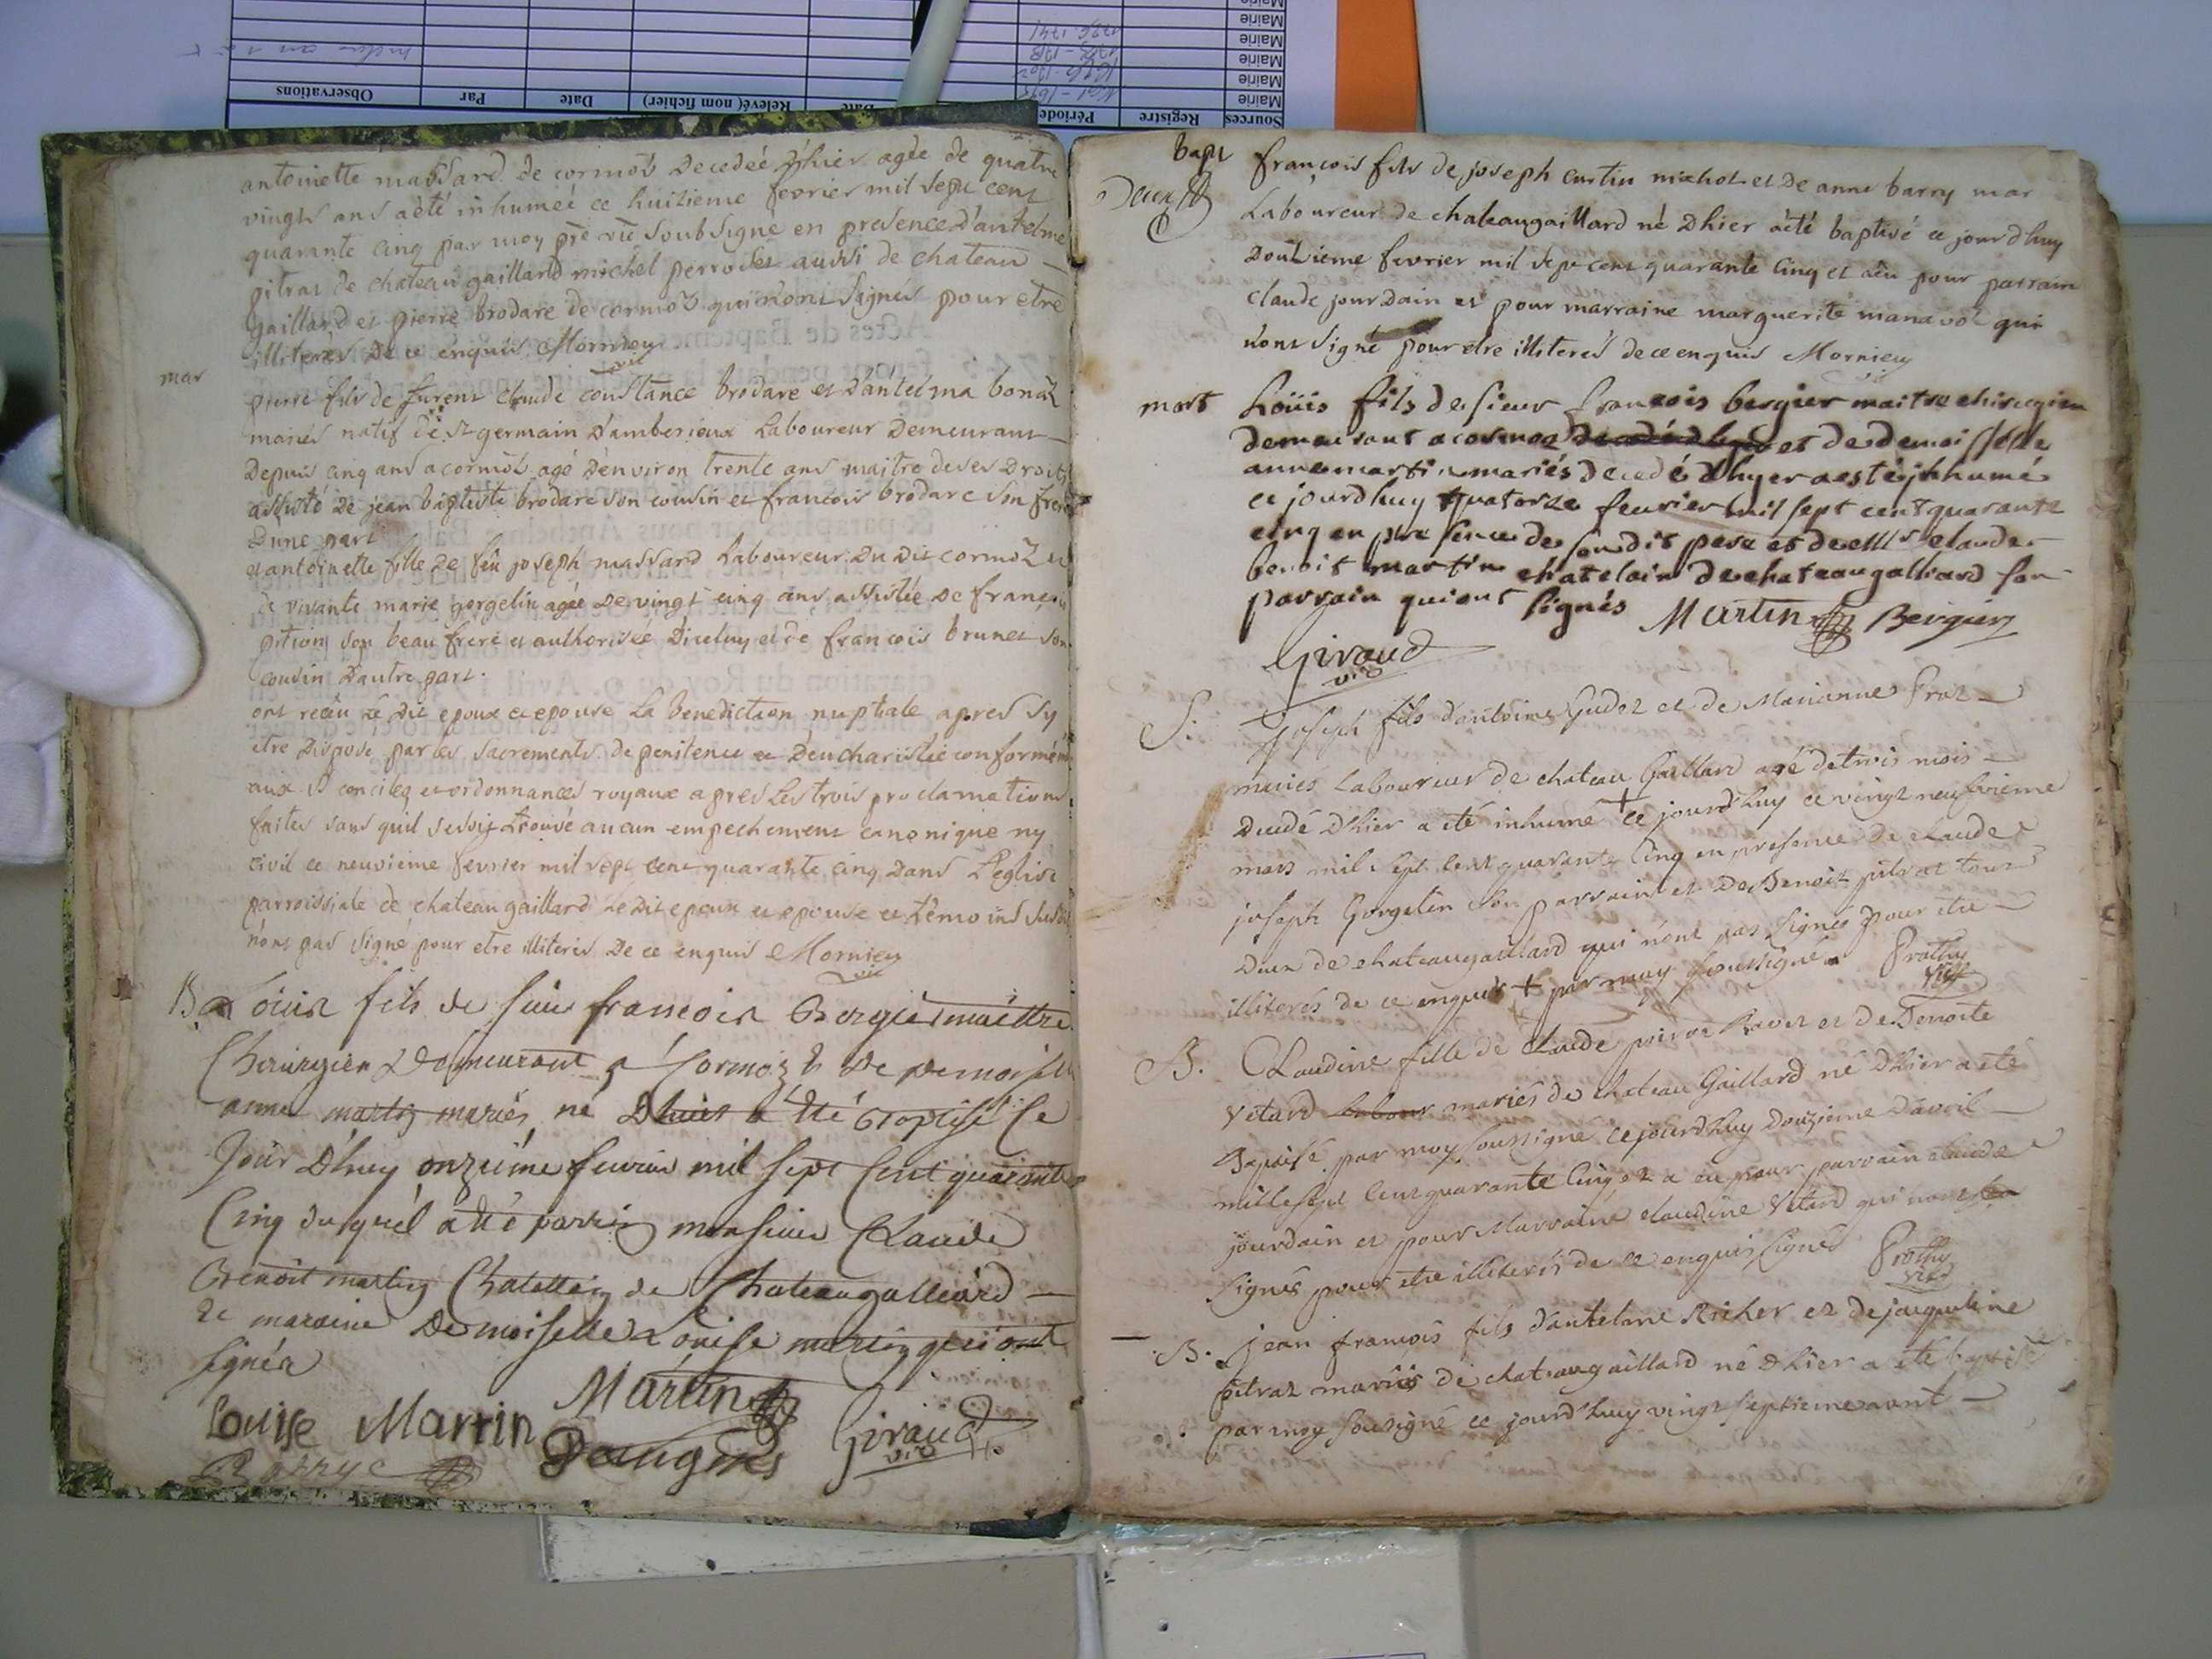 Sources Registre Période Date Relevé( nom fichier) Date Par Observations
Mairie 1691-1695
Mairie 1696-1702
Mairie 1703-1718
Mairie 1736-1741
Mairie
antoinette massard de cormoz decedeé d'hier agée de quatre
vingts ans a été inhumeé ce huitieme fevrier mil sept cent
quarante cinq par moy prê vic soubsigné en presence d'antelme
pitrat de chateau gaillard michel perrodet aussi de chateau
gaillard et pierre brodare de cormoz qui n'ont signés pour etre
illiterés de ce enquis Mornieu
vic
mar
pierre fils de furent claude constance brodare et d'antelma bonaz
mariés natif de st germain d'amberieux laboureur demeurant
depuis cinq ans a cormoz agé d'environ trente ans maitre de ses droits
assisté de jean baptiste brodare son cousin et francois brodare son frere
d'une part
et antoinette fille de feu joseph massard laboureur du dit cormoz et
de vivante marie gorgelin agée de vingt cinq ans assistée de francois
pition son beau frere et authorisée d'iceluy et de francois brunet son
cousin d'autre part.
ont recëu le dit epoux et epouse la benediction nuptiale apres s'y
etre disposé par les sacrements de penitence et d'eucharistie conformém
aux st conciles et ordonnances royaux apres les trois proclamations
faites sans qu'il se soit trouvé aucun empechement canonique ny
civil ce neuvieme fevrier mil sept cent quarante cinq dans l'eglise
parroissiale de chateau gaillard le dit epoux et epouse et témoins susdit
n'ont pas signé pour etre illiterés de ce enquis Mornieu
vic
Ba Loüis fils de sieur francois Bergier maittre
Chirurgien Demeurant a Cormoz & de Demoiselle
anne martin mariés né Dhier a été Baptisé Ce
Jour D'huy onzieme fevrier mil sept Cent quarante
Cinq duquel a été parrin monsieur Claude
Benoit martin Chatellain de Chateaugalliard
et maraine Demoiselle Louise martin qui ont
signés
Louise Martin Martin
Giraud
vic
bapt
francois fils de joseph curtin michol et de anne barry mar
laboureur de chateaugaillard né d'hier a été baptisé ce jourd'huy
douzieme fevrier mil sept cent quarante cinq et a eu pour parrain
claude jourdain et pour marraine marguerite manavol qui
n'ont signé pour etre illiterés de ce enquis Mornieu
mort Loüis fils de sieur francois bergier maitre chirurgien
demeurant a cormoz et de demoisselle
anne martin mariés decedé d'hyer a esté jnhumé
ce jourdhuy quatorze feurier mil sept cent quarante
cinq en presence de son dit pere et de Mr claude
benoit martin chatelain de chateaugalliard son
parrain qui ont signés Martin Bergier
Giraud
vic
S. Joseph fils d'antoine Gudet et de Marianne Prat
mariés Laboureur de chateau Gaillard agé de trois mois
decedé D'hier a eté inhumé + ce jourd'huy ce vingt neuvieme
mars mil sept cent quarante cinq en presence de claude
joseph Gorgelin son parrain et De Benoit pitrat tous
Deux de chateaugaillard qui n'ont pas signés pour etre
illiterés de ce enquis + par moy soussigné. Prothy
Vic
B. Claudine fille de claude poivre Ravet et de Benoite
Vetard mariés de chateau Gaillard né D'hier a eté
Baptisé par moy soussigné ce jourd'huy Douzieme d'avril
mille sept cent quarante cinq et a eu pour parrain claude
jourdain et pour Marraine claudine Vetard qui n'ont
signés pour etre illiterés de ce enquis signés Prothy
Vic
B. Jean francois fils d'antelme Richer et de jacqueline
pitrat mariés de chateaugaillard né D'hier a eté baptisé
par moy sousigné ce jourd'huy vingt septieme avril